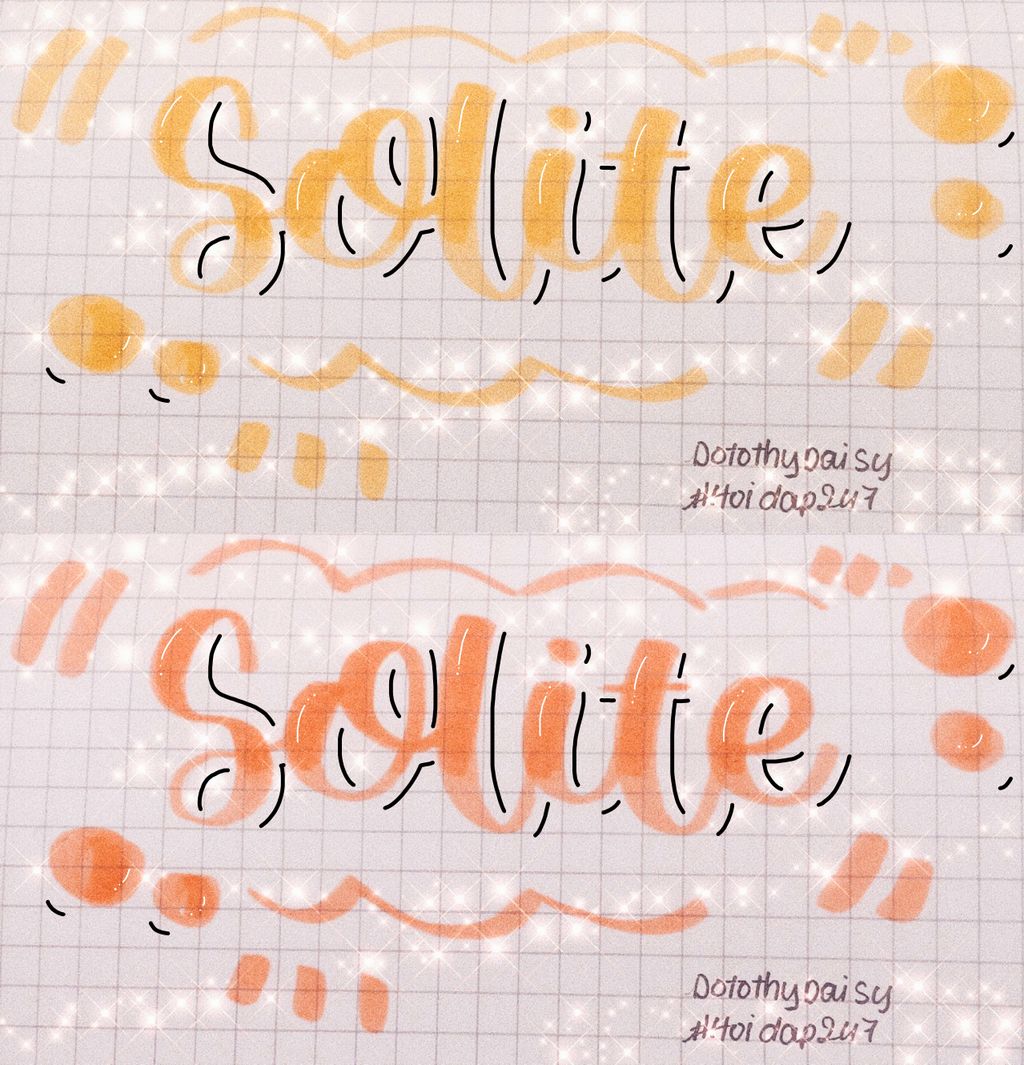 Solite
DotothyDaisy
#Hoidap247
Solite
DotothyDaisy
#Hoidap247